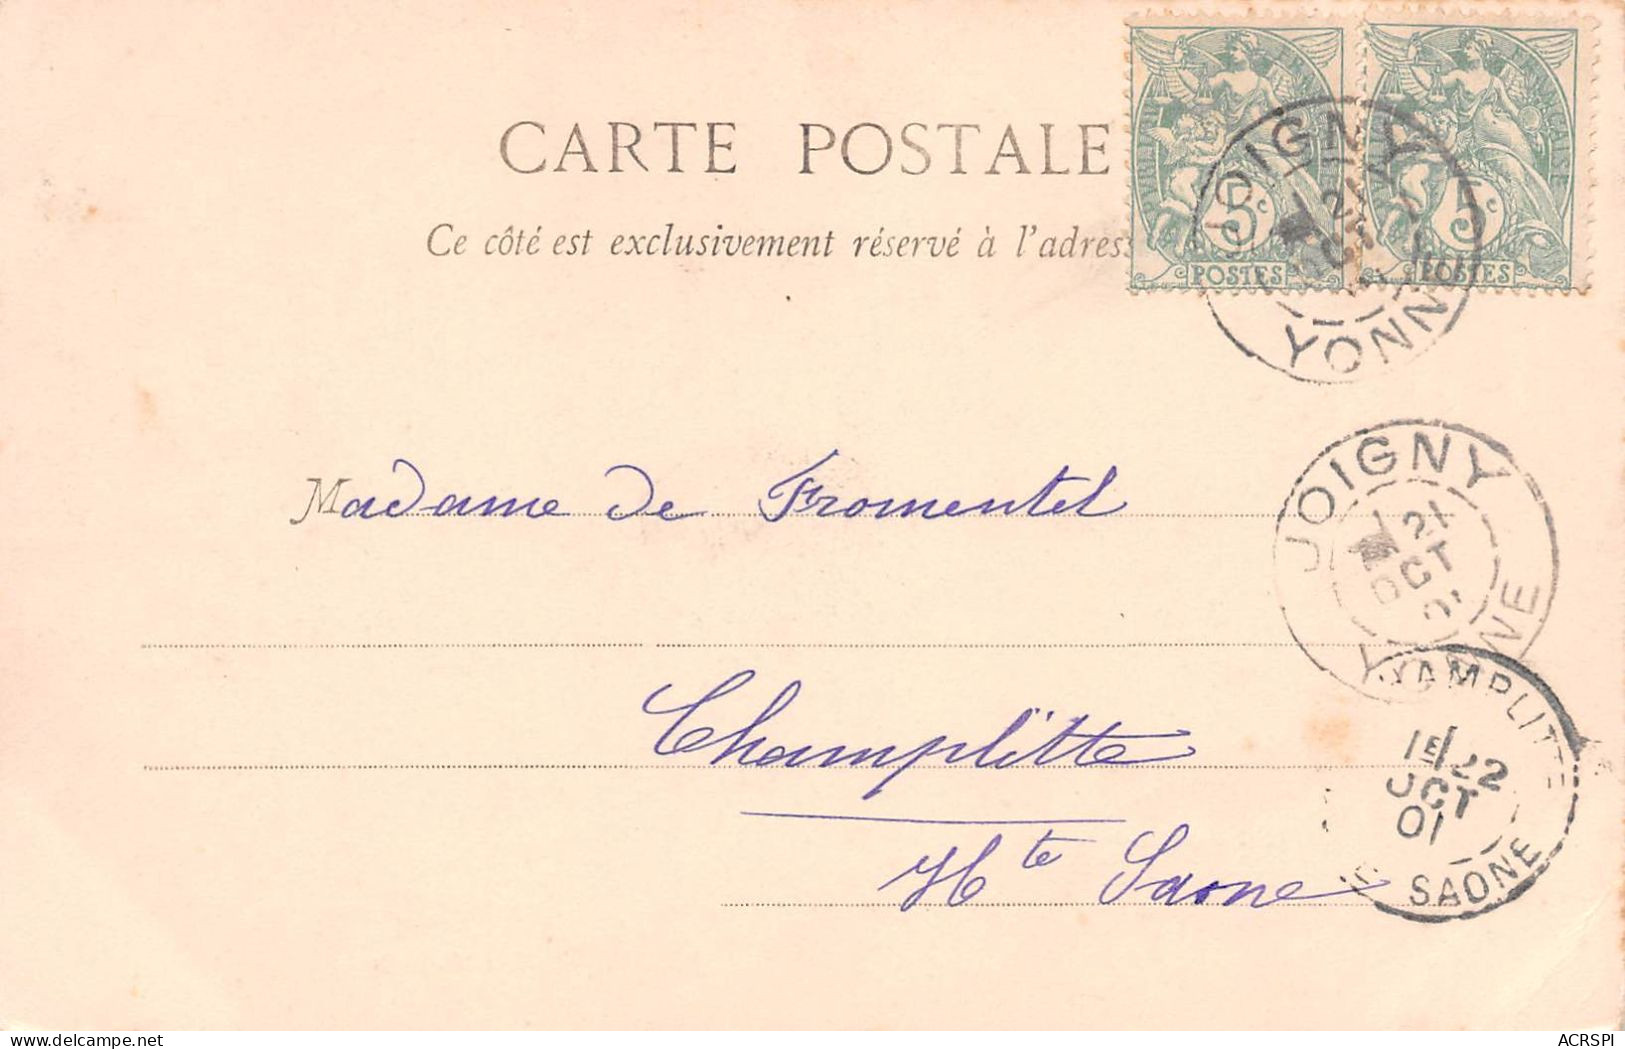 CARTE POSTALE
Ce côté est exclusivement réservé à l'adress
5c
POSTES
5c
POSTES
JOIGNY
21
OCT
YONNE
Madame de Fromentel
JOIGNY
21
OCT
01
Champlitte
Hte Saone
AMPLITTE
1E 22
OCT
01
SAONE
delcampe.net
ACRSPI